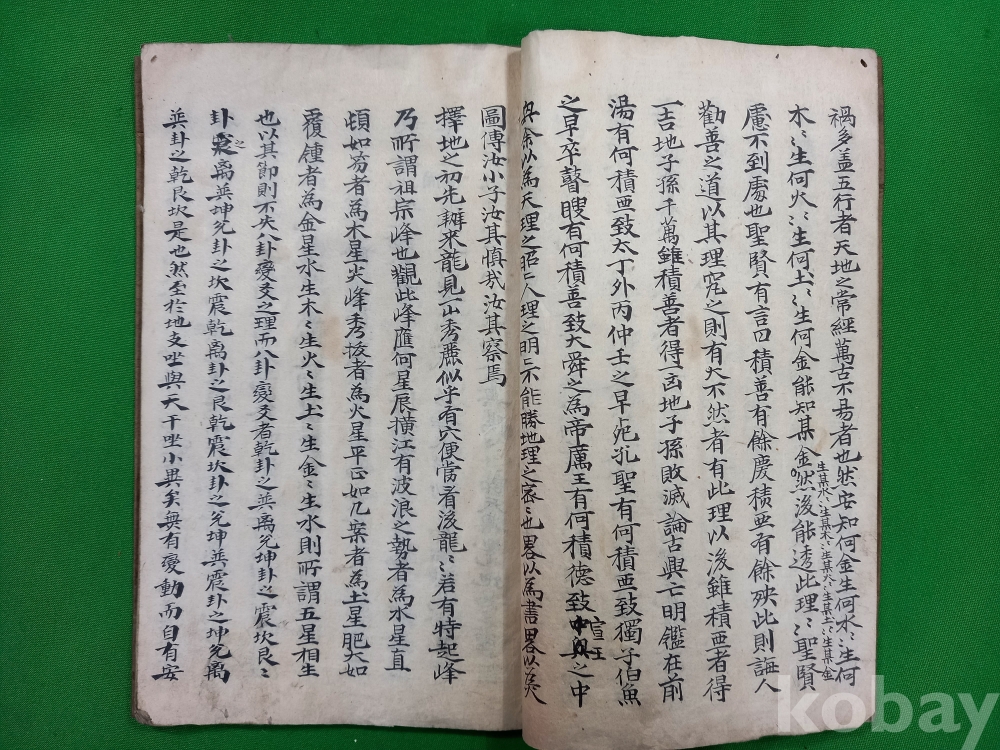 禍多盖五行者天地之常經萬古不易者也然安知何金生何水〻生何
木〻生何火〻生何土〻生何金能知某金生某水〻生某木〻生某火〻生某土〻生某金然後能透此理〻聖賢
慮不到處也聖賢有言曰積善有餘慶積惡有餘殃此則誨人
勸善之道以其理究之則有大不然者有此理以後雖積惡者得
一吉地子孫千萬雖積善者得一凶地子孫敗滅論古興亡明鑑在前
湯有何積惡致太丁外丙仲壬之早死孔聖有何積惡致獨子伯魚
之早卒瞽瞍有何積善致大舜之為帝厲王有何積德致宣王中興之中
興余以為天理之昭〻人理之明〻不能勝地理之密〻也畧以為書畧以
圖傳汝小子汝其慎哉汝其察焉
擇地之初先辨來龍見山秀麗似乎有穴便當看後龍〻若有特起峰
乃所謂祖宗峰也觀此峰應何星辰橫江有波浪之勢者為水星直
頓如笏者為木星尖峰秀拔者為火星平正如几案者為土星肥大如
覆鍾者為金星水生木〻生火〻生土〻生金〻生水則所謂五星相生
也以其節則不失八卦變爻之理而八卦變爻者乾卦之巽离兌坤卦之震坎艮〻
卦之离巽坤兌卦之坎震乾离卦之艮乾震坎卦之兌坤巽震卦之坤兌离
巽卦之乾艮坎是也然至於地支坐與天干坐小異矣無有變動而自有安
kobay